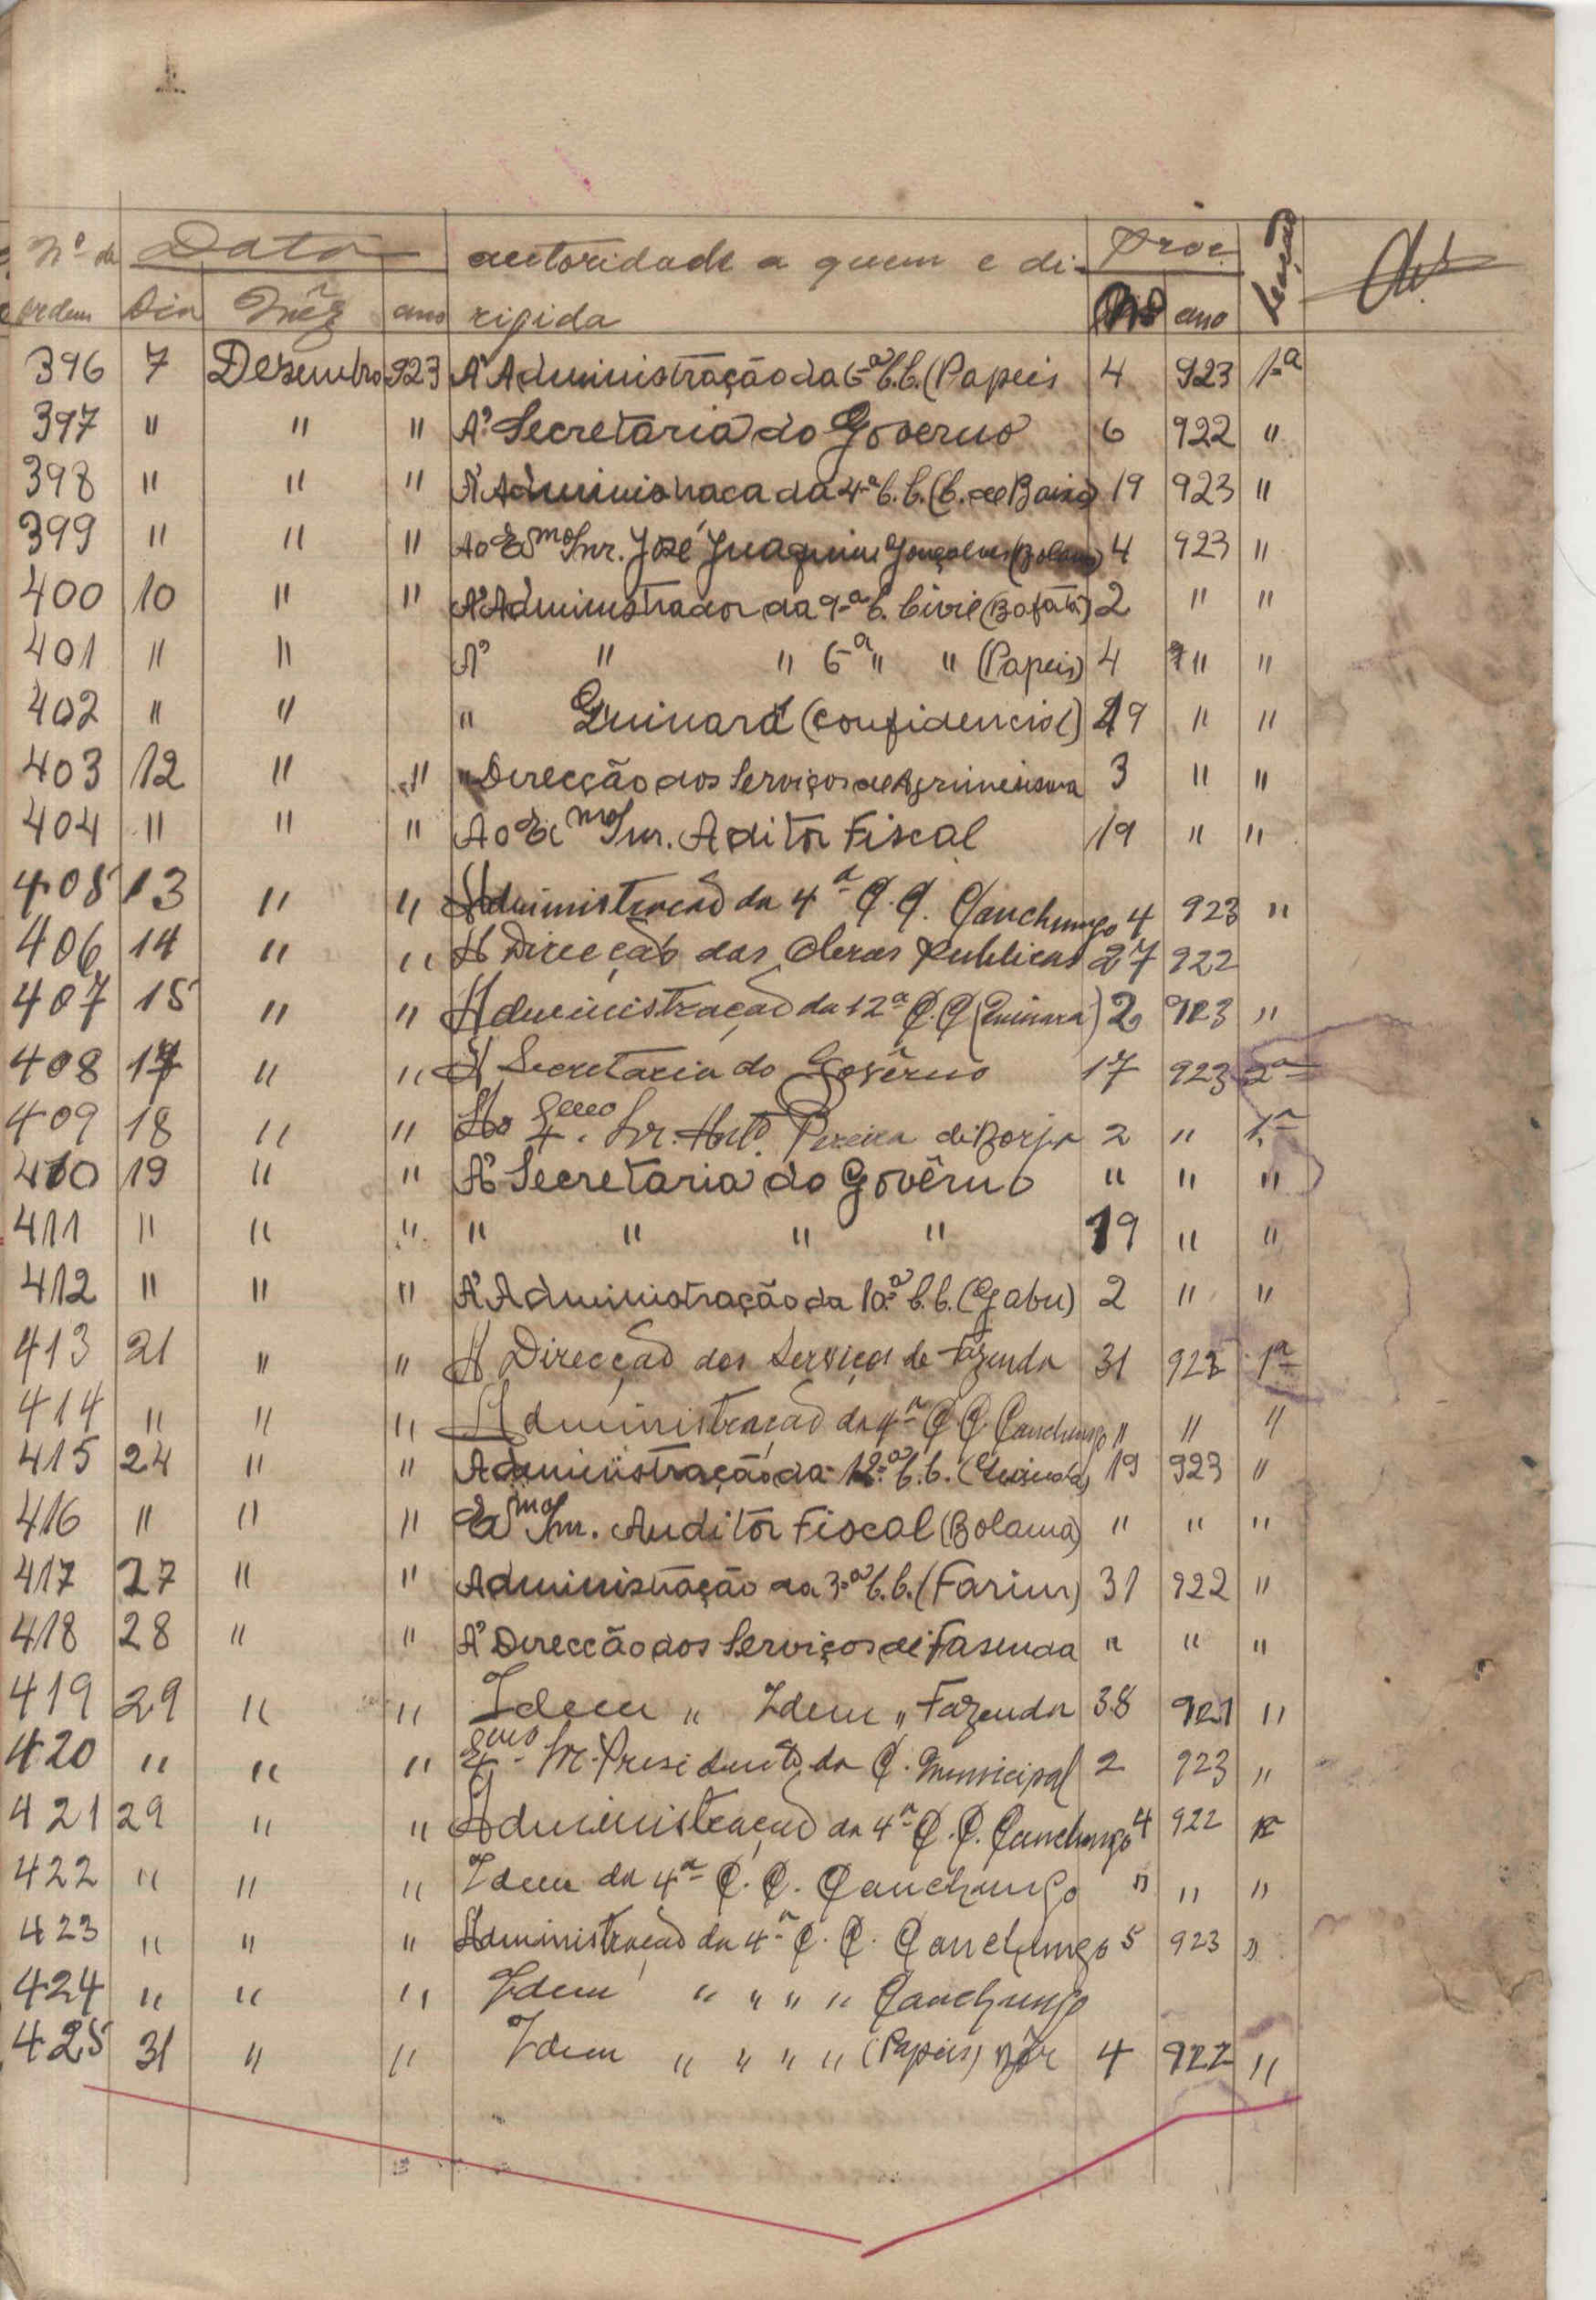 Nº de Data autoridade a quem e di- Proc. Secção
ordem Dia Mêz ano rigida Nº ano
396 7 Dezembro 923 A' Administração da 6ª C.C. (Papeis 4 923 1ª
397 " " " A' Secretaria do Governo 6 922 "
398 " " " A' Administraca da 4ª C.C. (C. de Baixo) 19 923 "
399 " " " Ao Exmo Snr. José Juaquim Gonçalves (Bolama) 4 923 "
400 10 " " A' Administrador da 9ª C. Civil (Bafatá) 2 " "
401 " " A' " " 6ª " " (Papeis) 4 " "
402 " " " Guinará (confidencial) 19 " "
403 12 " " " Direcção dos Serviços de 3 " "
404 " " " Ao Exmo Snr. Aditor Fiscal 19 " "
405 13 " " Administração da 4ª C.C. Canchungo 4 923 "
406 14 " " A Direcção das Obras Publicas 27 922
407 15 " " Administração da 12ª C.C. (Quinara) 2 923 "
408 17 " " A Secretaria do Govêrno 17 923 2ª
409 18 " " Ao Exmo. Sr. Antº. Pereira de Borja 2 " 1ª
410 19 " " A' Secretaria do Govêrno " " "
411 " " " " " " " 19 " "
412 " " " A' Administração da 10ª C.C. (Gabu) 2 " "
413 21 " " A Direcção dos Serviços de Fazenda 31 923 1ª
414 " " " Administração da 4ª C C. Canchungo " " "
415 24 " " Administração da 12ª C.C. (Guinala) 19 923 "
416 " " " Exmo Snr. Auditor Fiscal (Bolama) " " "
417 27 " " Administração da 3ª C.C. (Farim) 31 922 "
418 28 " " A' Direcção dos Serviços de Fasenda " " "
419 29 " " Idem " Idem " Fazenda 38 921 "
420 " " " Exmo. Sr. Presidente da C. Municipal 2 923 "
421 29 " " Administração da 4ª C.C. Canchungo 4 922 "
422 " " " Idem da 4ª C.C. Canchungo " " "
423 " " " Administração da 4ª C.C. Canchungo 5 923 "
424 " " " Idem " " " " Canchungo
425 31 " " Idem " " " " (Papeis) 4 922 "